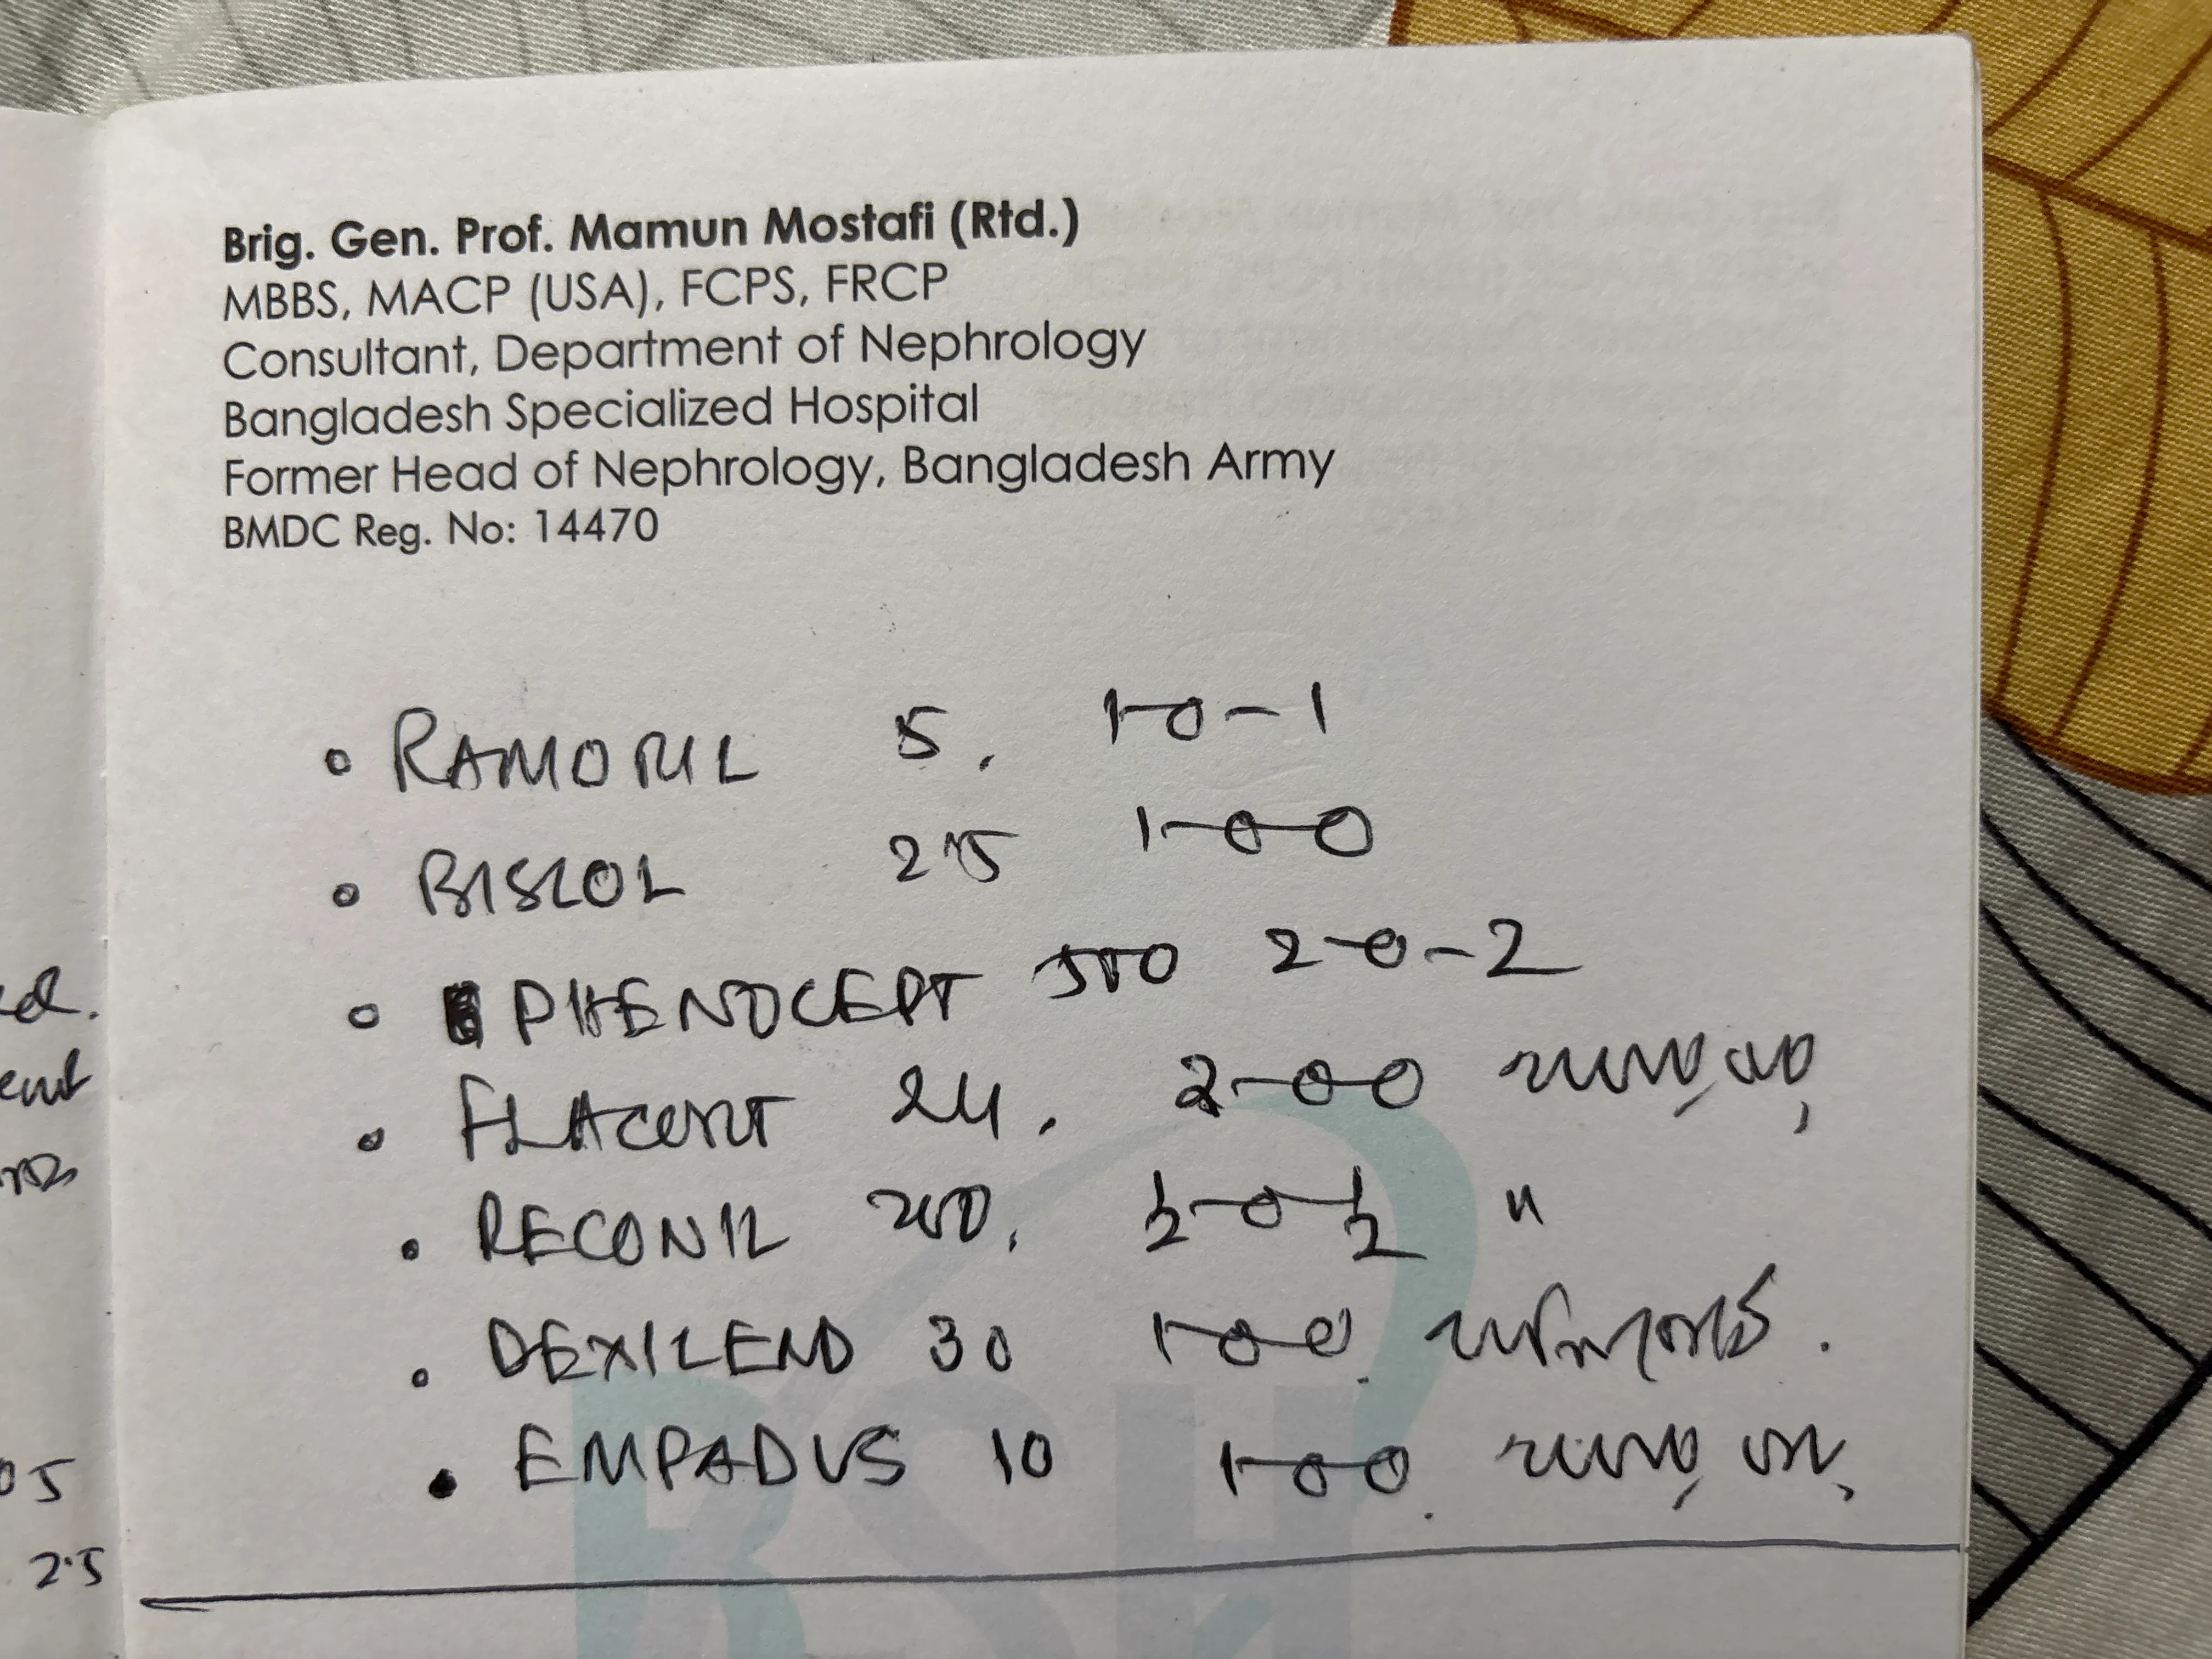 Brig. Gen. Prof. Mamun Mostafi (Rtd.)
MBBS, MACP (USA), FCPS, FRCP
Consultant, Department of Nephrology
Bangladesh Specialized Hospital
Former Head of Nephrology, Bangladesh Army
BMDC Reg. No: 14470
• RAMORIL 5. 1-0-1
• BISLOL 2.5 1-0-0
• PHENOCEPT 500 2-0-2
• FLACORT 24. 2-0-0
• RECONIL 200. ½-0-½ "
• DEXILEND 30 1-0-0.
• EMPADUS 10 1-0-0.
05
2.5
BSH